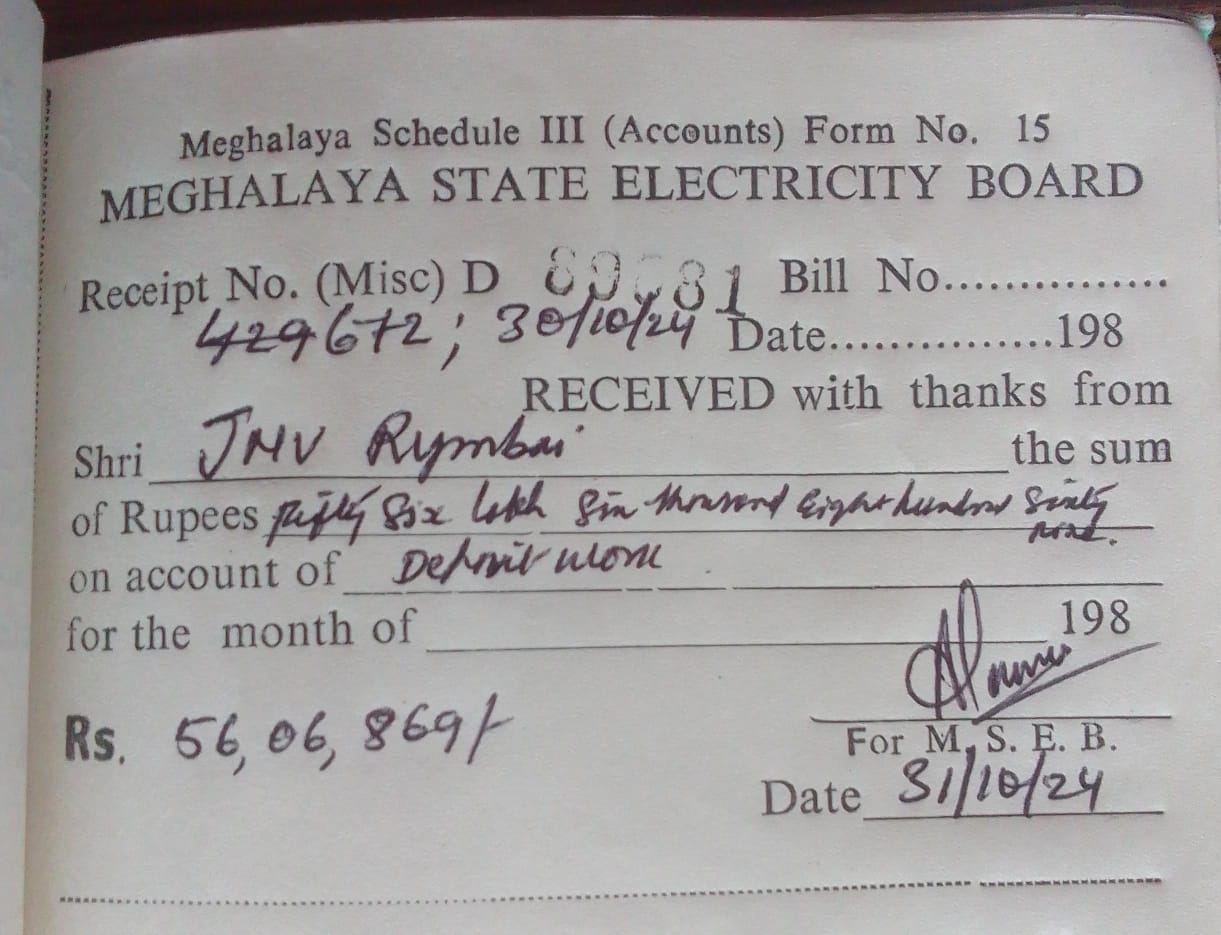 Meghalaya Schedule III (Accounts) Form No. 15
MEGHALAYA STATE ELECTRICITY BOARD
Receipt No. (Misc) D Bill No...............
429672; 30/10/24 Date...............198
RECEIVED with thanks from
Shri JNV Rymbai the sum
of Rupees Fifty Six lakh Six thousand Eight hundred Sixty
nine.
on account of Deposit work
for the month of 198
Rs. 56,06,869/-
For M. S. E. B.
Date 31/10/24